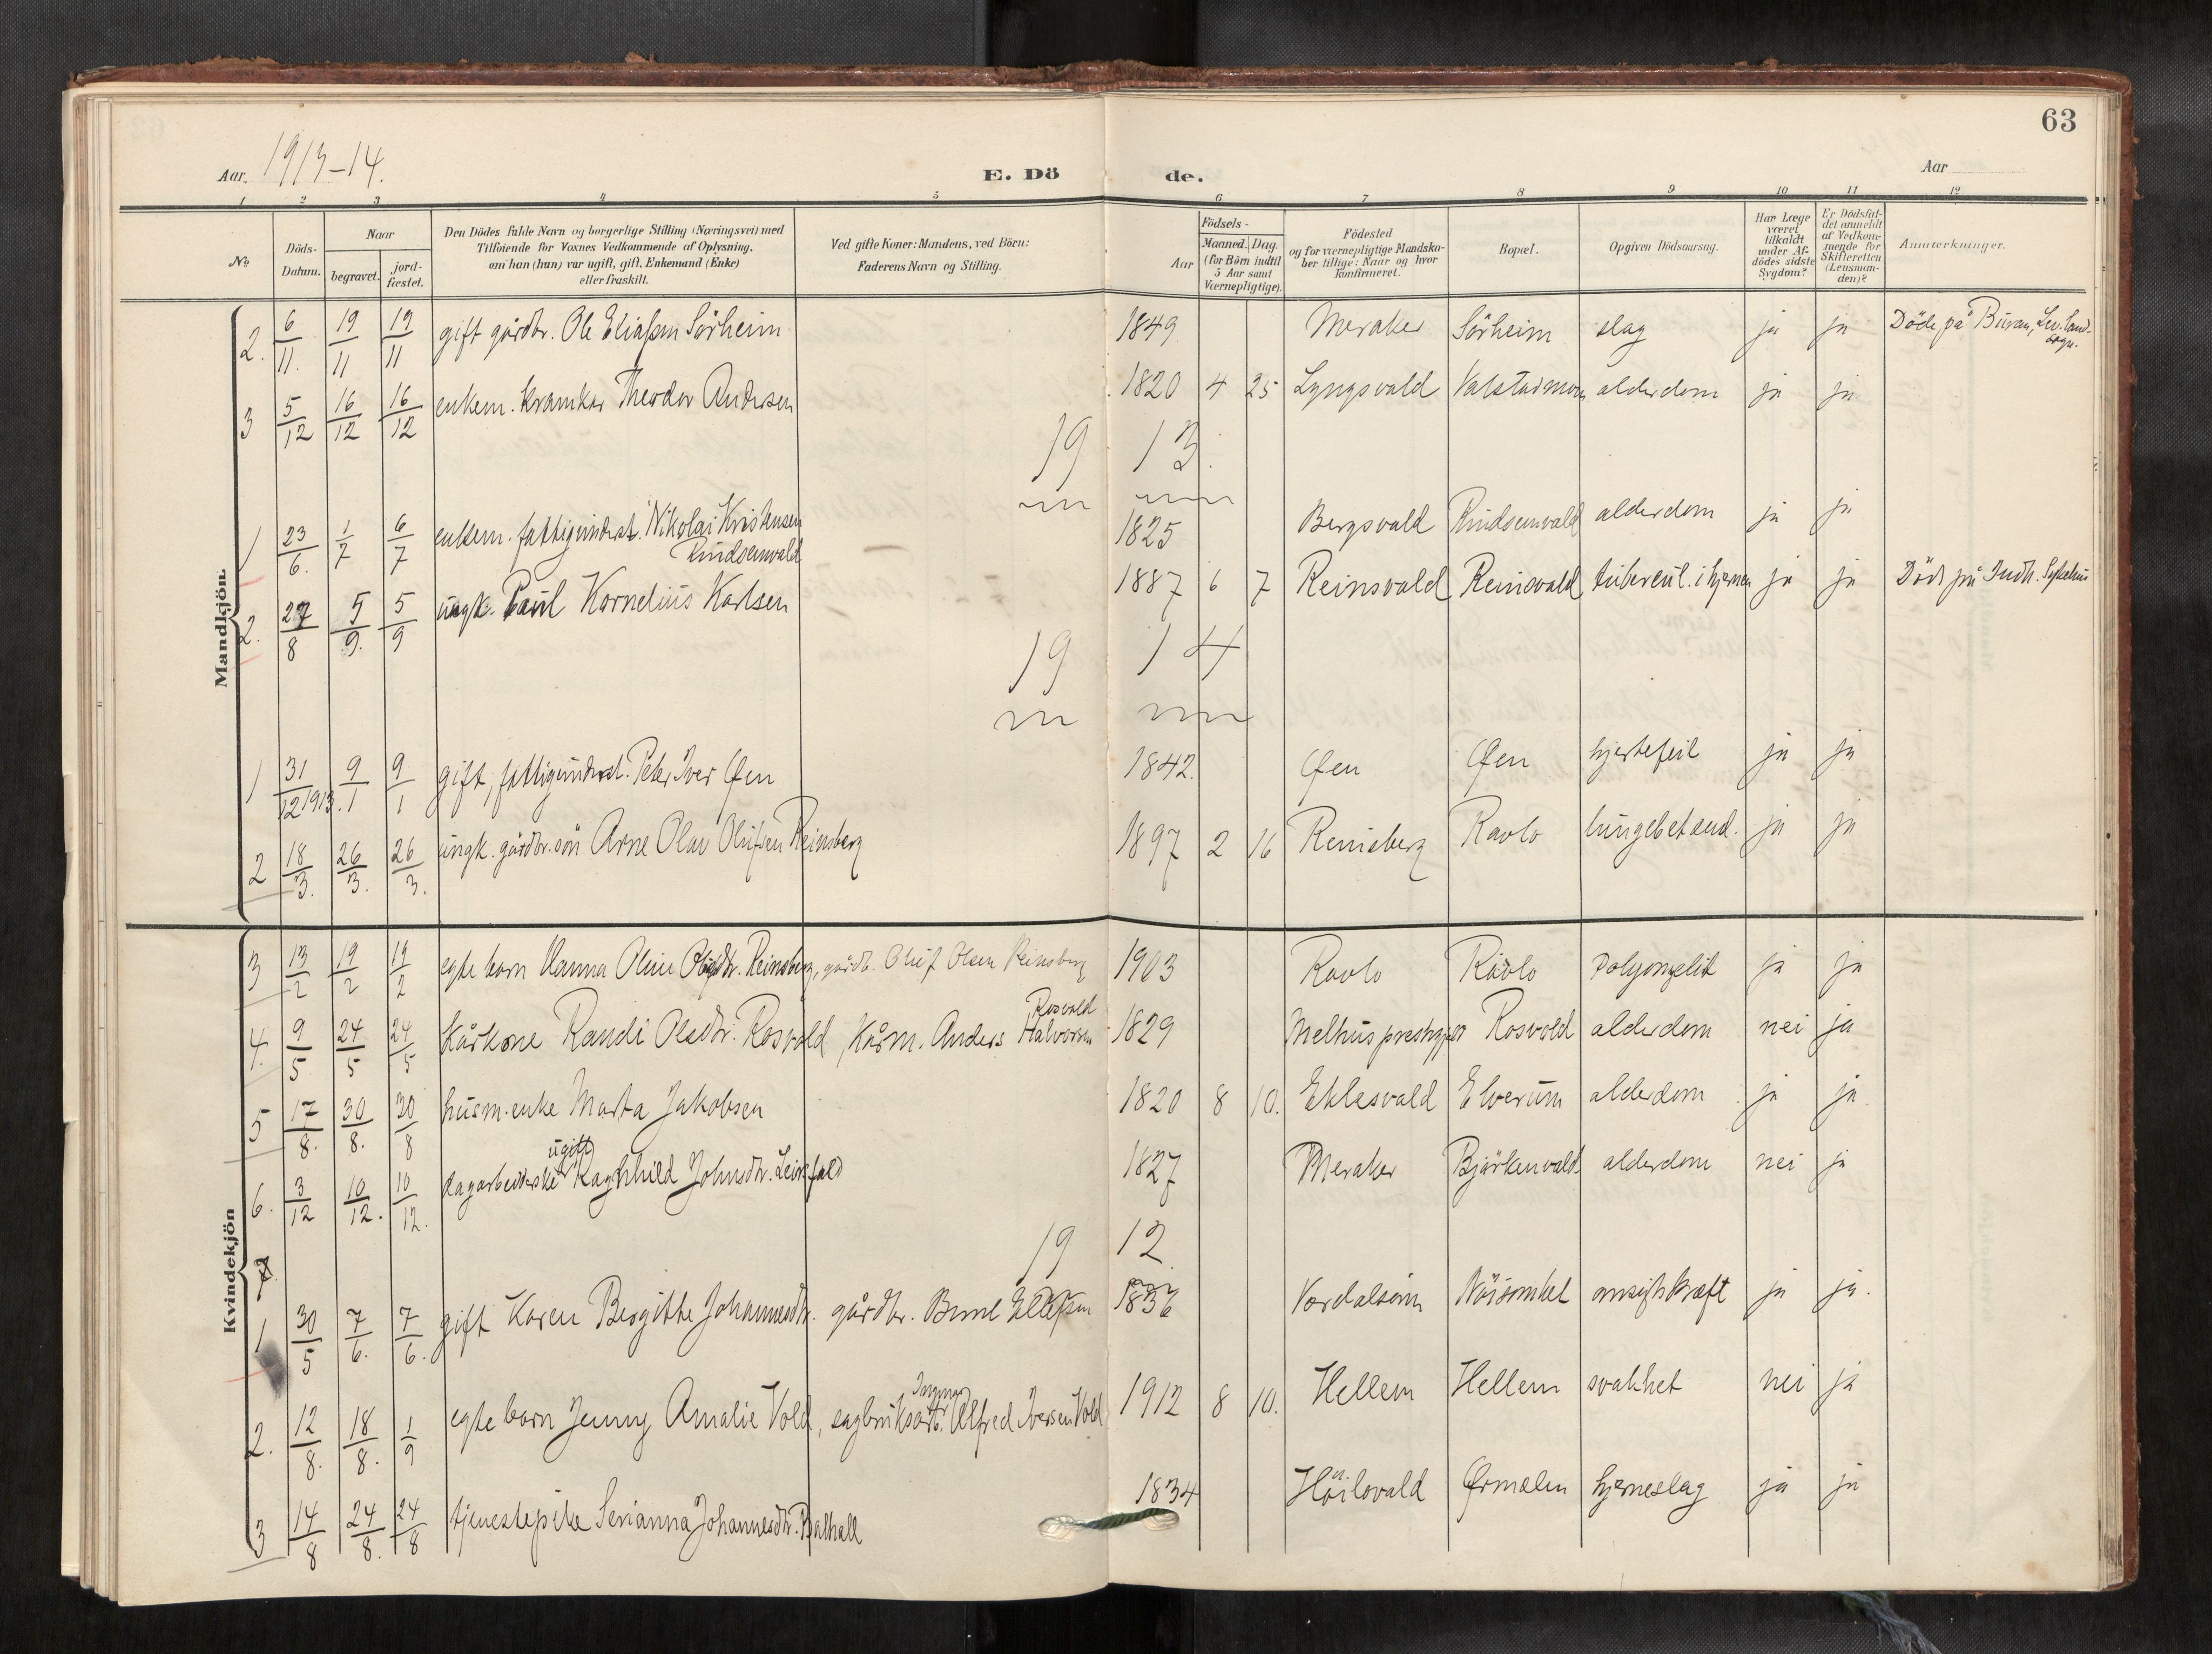 63
Aar 1913-14.
E. Dö de.
Aar
1 2 3 4 5 6 7 8 9 10 11 12
No
Döds-Datum.
Naar
begravet.
jord-fæstet.
Den Dödes fulde Navn og borgerlige Stilling (Næringsvei) med
Tilföiende for Voxnes Vedkommende af Oplysning,
om han (hun) var ugift, gift, Enkemand (Enke)
eller fraskilt.
Ved gifte Koner: Mandens, ved Börn:
Faderens Navn og Stilling.
Födsels-
Aar
Maaned. Dag.
(for Börn indtil
5 Aar samt
Værnepligtige).
Födested
og for værnepligtige Mandska-
ber tillige: Naar og hvor
konfirmeret.
Bopæl.
Opgiven Dödsaarsag.
Har Læge
været
tilkaldt
under Af-
dödes sidste
Sygdom?
Er Dödsfal-
det anmeldt
af Vedkom-
mende for
Skifteretten
(Lensman-
den)?
Anmærkninger.
Mandkjön.
2. 6/11. 19/11 19/11 gift gårdbr. Ole Eliassen Sörheim 1849. Meraker Sörheim slag ja ja Döde på Buran, Lev. land-
sogn.
3 5/12 16/12 16/12 enkem. kramkar Theodor Andersen 1820 4 25 Lyngsvald Valstadmoen alderdom ja ja
1913.
1 23/6. 1/7 6/7 enkem. fattigunderst. Nikolai Kristensen
Rindsemvald 1825 Bergsvald Rindsemvald alderdom ja ja
2. 27/8 5/9. 5/9 ungk. Paul Kornelius Karlsen 1887 6 7 Reinsvald Reinsvald tubercul. i hjernen ja ja Död på Indh. Sykehus
1914
1 31/12 1913. 9/1 9/1 gift, fattigunderst. Peter Iver Øen 1842. Øen Øen hjertefeil ja ja
2 18/3. 26/3. 26/3. ungk. gårdbr. sön Arne Olav Olufsen Reinsberg 1897 2 16 Reinsberg Ravlo lungebetænd. ja ja
Kvindekjön
3 13/2 19/2 19/2 egte barn Hanna Oline Olufsdtr. Reinsberg, gårdb. Oluf Olsen Reinsberg 1903 Ravlo Ravlo ja ja
4. 9/5. 24/5 24/5 Kårkone Randi Olsdtr. Rosvold, Kårm. Anders Halvorsen
Rosvold 1829 Melhus prestegj. Rosvold alderdom nei ja
5 17/8. 30/8. 30/8 husm.enke Marta Jakobsen 1820 8 10. Eklesvald Elverum alderdom ja ja
6. 3/12 10/12. 10/12. dagarbeiderske ugift Ragnhild Johnsdtr. Leinsfald 1827 Meraker Björkenvald alderdom nei ja
1912
7.
1 30/5 7/6. 7/6. gift Karen Bergitte Johannesdtr. gårdbr. Bernt Ellefsen 1836 Værdalsören ja ja.
2. 12/8. 18/8. 1/9 egte barn Jenny Amalie Vold, sagbruksarb. Ingmar Alfred Iversen Vold 1912 8 10. Hellem Hellem svakhet nei ja
3 14/8 24/8. 24/8 tjenestepike Serianna Johannesdtr. Balhall 1834 Höilovald Ørmelen hjerneslag ja ja